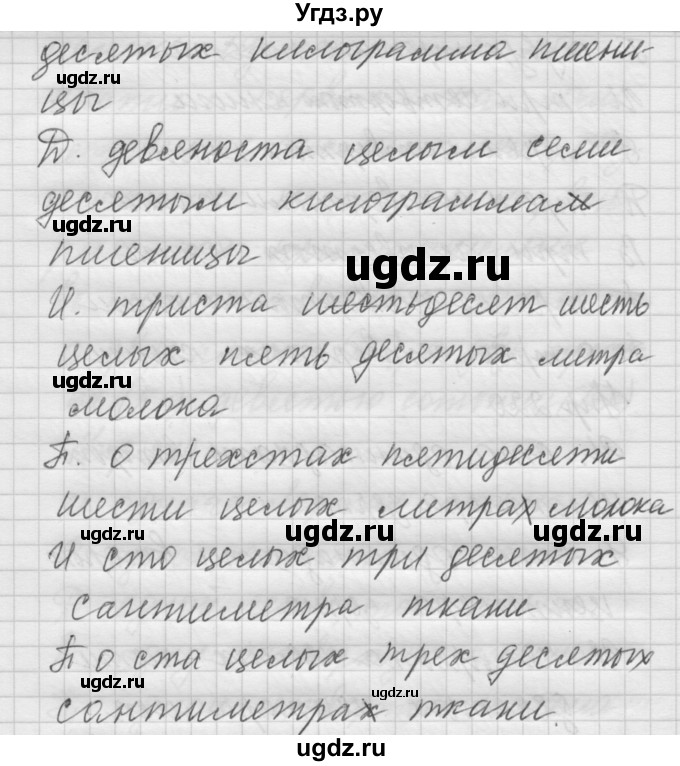 Угдз.ру
десятых килограмма пшени-
ugdz.ru
цы
Д. девяноста целым семи
десятым килограммам
ugdz.ru
пшеницы
ugdz.ru
И. триста шестьдесят шесть
целых пять десятых метра
ugdz.ru
молока
П. о трехстах пятидесяти
шести целых метрах молока
ugdz.ru ugdz.ru ugdz.ru
И сто целых три десятых
сантиметра ткани
П о ста целых трех десятых
ugdz.ru
ugdz.ru
сантиметрах ткани.
ugdz.ru